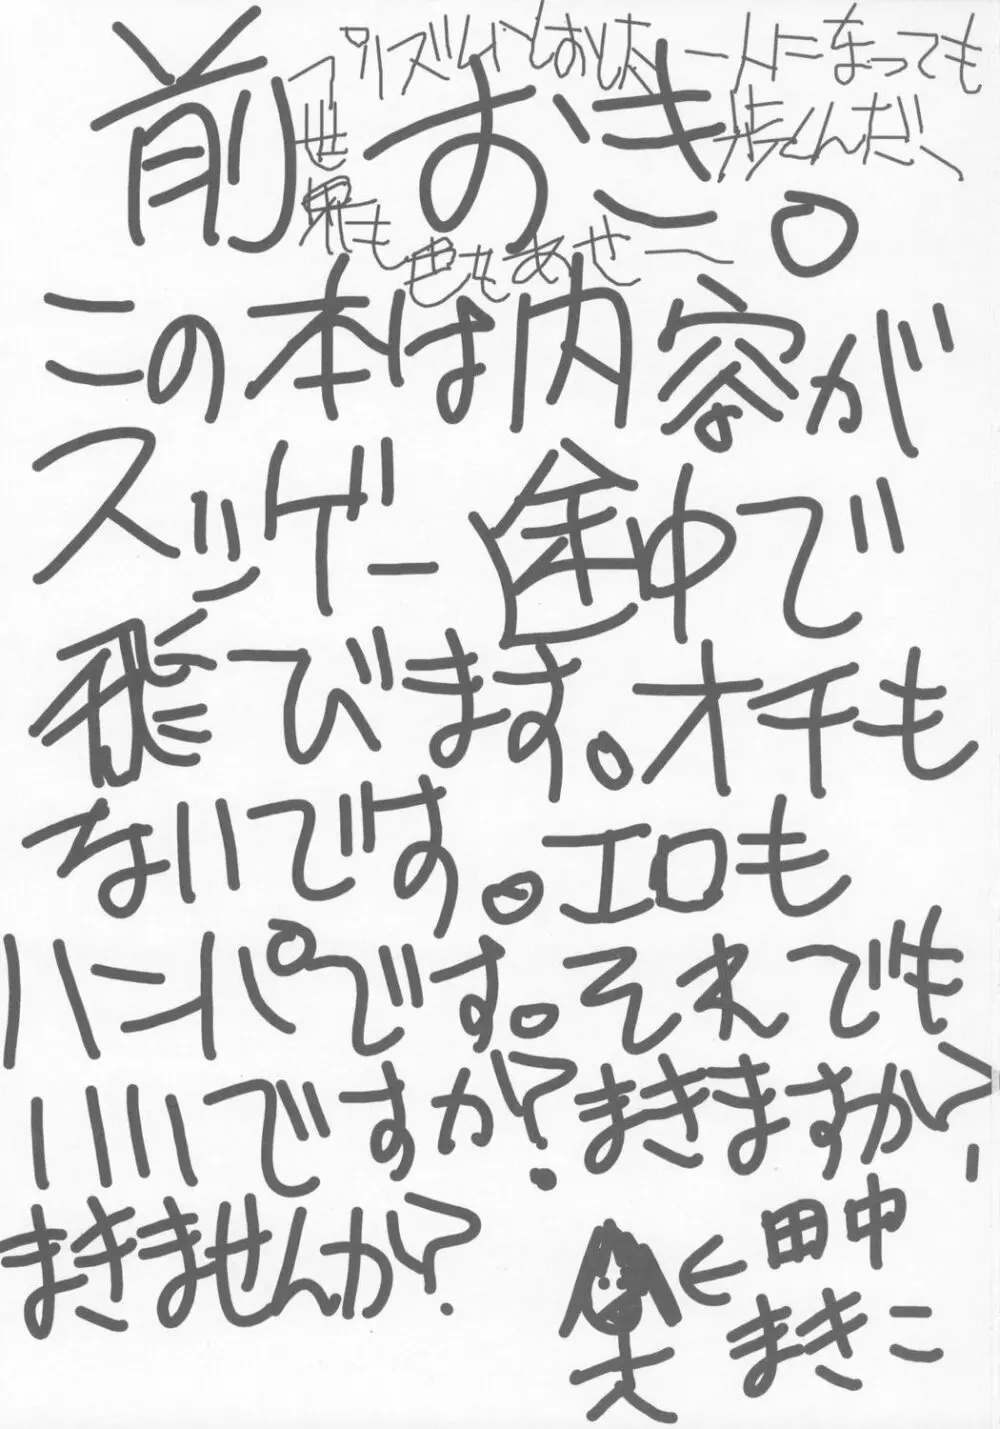 プリズムひとおした一人になっても
歩くんだ、
世
界も
色もあせー
前おき。
この本は内容が
スッゲー途中で
飛びます。オチも
ないです。エロも
ハンパです。それでも
いいですか？まきますか？
まきませんか？
←田中
まきこ